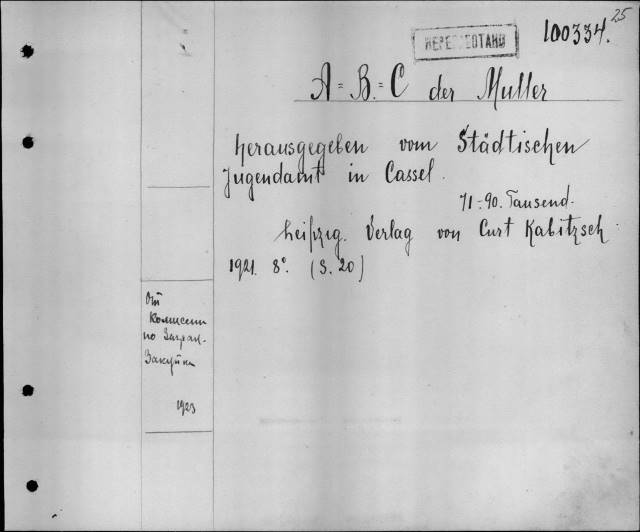 25
100334.
A=B=C der Mutter
herausgegeben vom Städtischen
Jugendamt in Cassel.
71-90. Tausend.
Leipzig. Verlag von Curt Kabitzsch
1921. 8°. (S. 20)
От
Комиссии
по Загран.
Закупки
1923